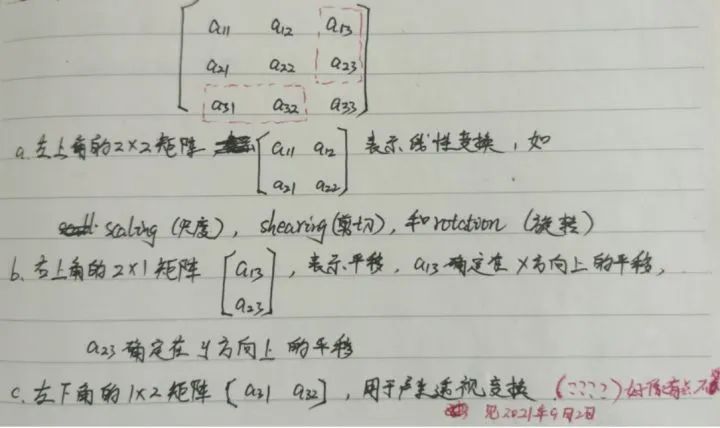 a11 a12 a13
a21 a22 a23
a31 a32 a33
a.左上角的2×2矩阵 [a11 a12 表示线性变换,如
a21 a22]
scaling(尺度),shearing(剪切),和rotation(旋转)
b.右上角的2×1矩阵 [a13 ,表示平移,a13确定在X方向上的平移,
a23]
a23确定在y方向上的平移
c.左下角的1×2矩阵[a31 a32],用于产生透视变换 (ここここ)好像有点不
见2021年9月2日